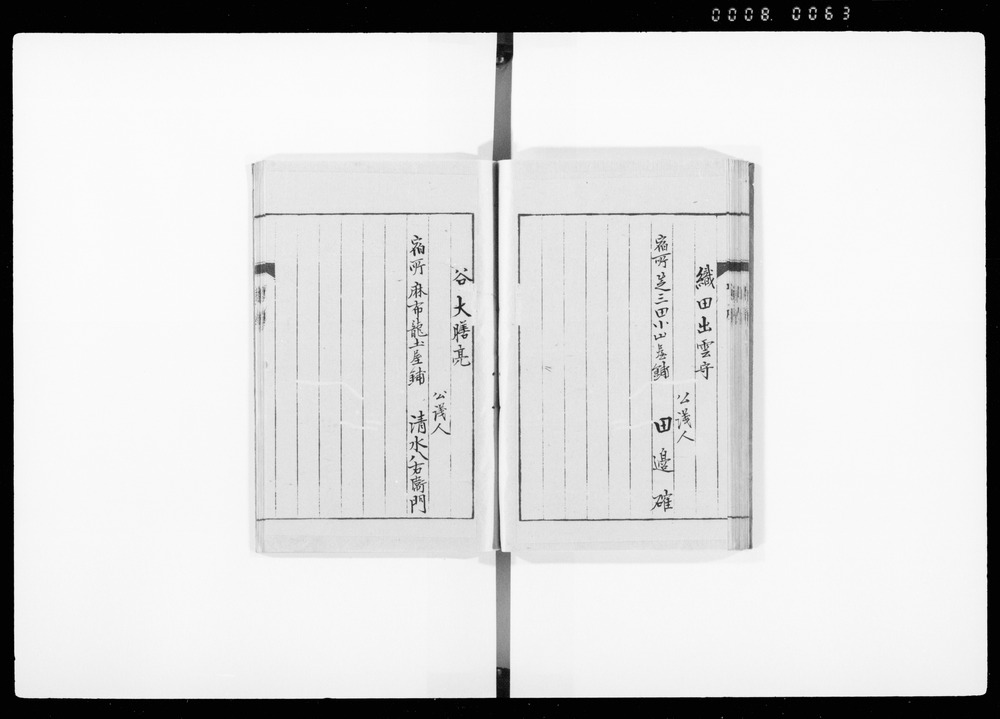 0008 0063
織田出雲守
公議人
宿所芝三田小山屋鋪 田邉確
谷大膳亮
公議人
宿所麻布龍土屋鋪 清水八右衛門